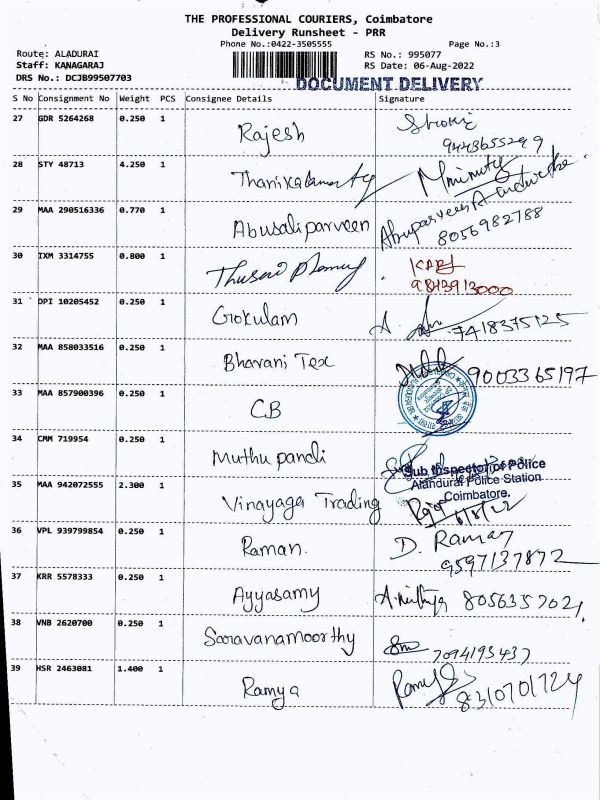 THE PROFESSIONAL COURIERS, Coimbatore
Delivery Runsheet - PRR
Phone No.:0422-3505555
Page No.:3
Route: ALADURAI
RS No.: 995077
Staff: KANAGARAJ
RS Date: 06-Aug-2022
DRS No.: DCJB99507703
DOCUMENT DELIVERY
S No Consignment No Weight PCS Consignee Details Signature
27 GDR 5264268 0.250 1 Rajesh
9443655299
28 STY 48713 4.250 1
29 MAA 290516336 0.770 1 Abusaliparveen
8056982788
30 IXM 3314755 0.800 1
9843913000
31 DPI 10205452 0.250 1 Gokulam
7418375125
32 MAA 858033516 0.250 1 Bhavani Tex
9003365197
33 MAA 857900396 0.250 1 CB
34 CMM 719954 0.250 1 Muthu pandi
Sub Inspector of Police
Alandurai Police Station
Coimbatore.
35 MAA 942072555 2.300 1 Vinayaga Trading
6/8/22
36 VPL 939799854 0.250 1 Raman. D. Raman
9597137872
37 KRR 5578333 0.250 1 Ayyasamy A. nithya
38 VNB 2620700 0.250 1 Saravanamoorthy
7094193437
39 HSR 2463081 1.400 1 Ramya
8310701724